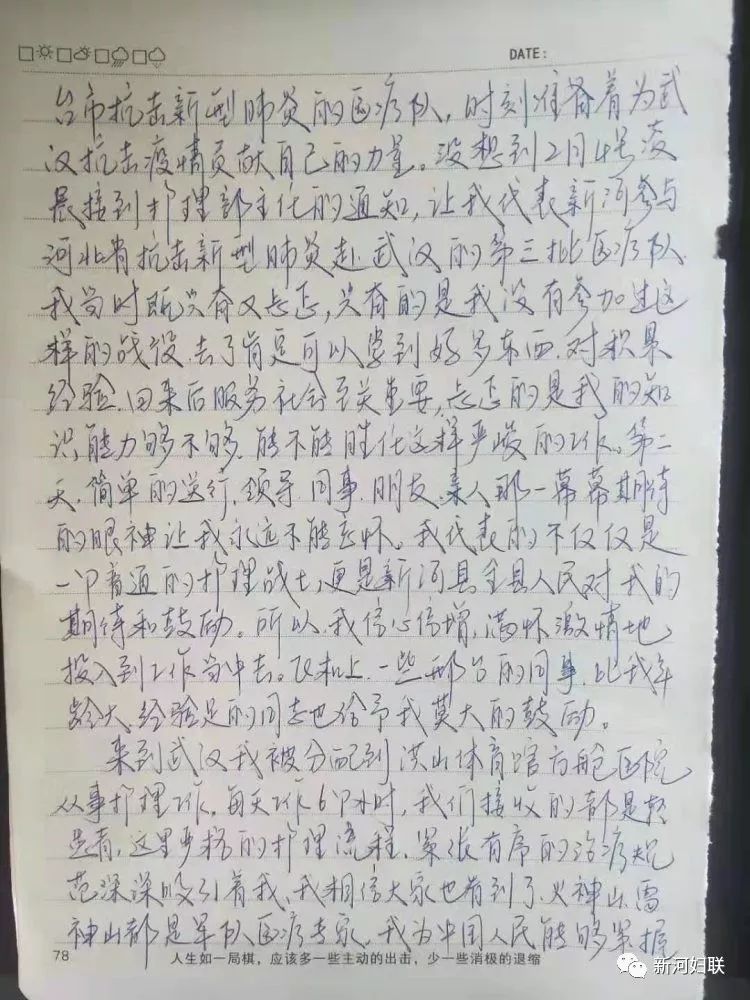 DATE:
台市抗击新型肺炎的医疗队，时刻准备着为武
汉抗击疫情贡献自己的力量。没想到2月4号凌
晨接到护理部主任的通知，让我代表新河参与
河北省抗击新型肺炎赴武汉的第三批医疗队
我当时既兴奋又忐忑，兴奋的是我没有参加过这
样的战役，去了肯定可以学到好多东西，对积累
经验，回来后服务社会至关重要，忐忑的是我的知
识，能力够不够，能不能胜任这样严峻的工作。第二
天，简单的送行，领导、同事、朋友、亲人那一幕幕期待
的眼神让我永远不能忘怀。我代表的不仅仅是
一个普通的护理战士，更是新河县全县人民对我的
期待和鼓励。所以，我信心倍增，满怀激情地
投入到工作当中去。飞机上，一些邢台的同事，比我年
龄大、经验足的同志也给予我莫大的鼓励。
来到武汉我被分配到洪山体育馆方舱医院
从事护理工作，每天工作6个小时，我们接收的都是轻
患者，这里严格的护理流程、紧张有序的治疗规
范深深吸引着我，我相信大家也看到了，火神山、雷
神山都是军队医疗专家，我为中国人民能够掌握
78
人生如一局棋，应该多一些主动的出击，少一些消极的退缩
新河妇联